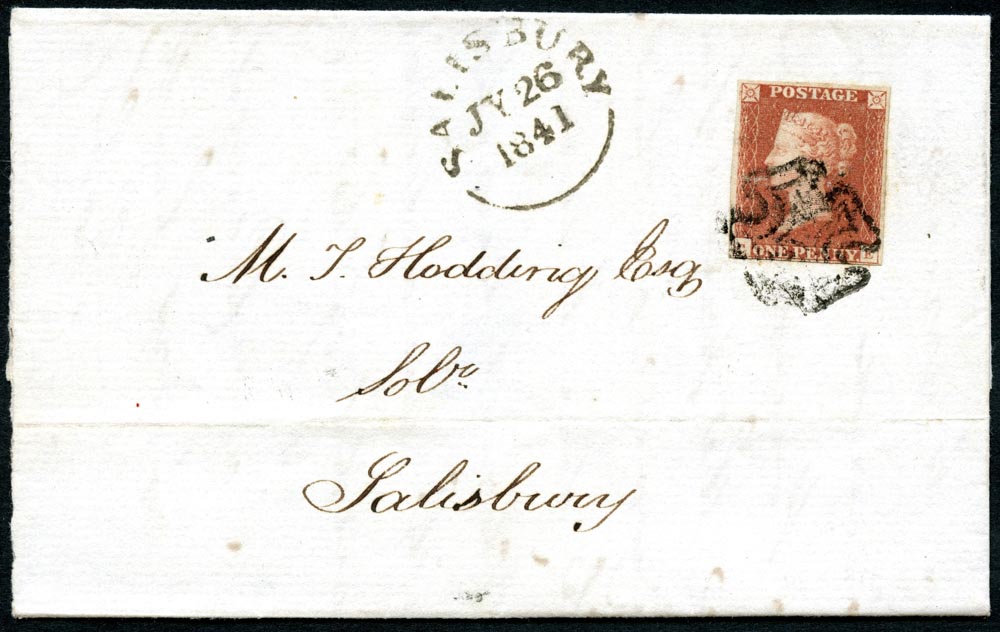 SALISBURY
JY 26
1841
POSTAGE
ONE PENNY
M. T. Hodding Esq
Solrs
Salisbury